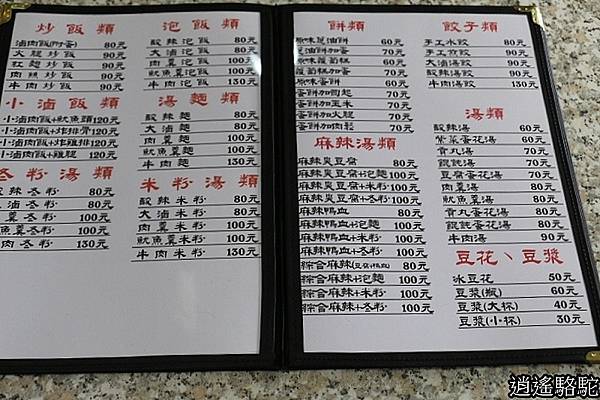 炒飯類
滷肉飯(附蛋) 80元
火腿炒飯 90元
蝦麵炒飯 90元
肉絲炒飯 90元
牛肉炒飯 90元
小滷飯類
小滷肉飯+魷魚頭120元
小滷肉飯+炸排骨120元
小滷肉飯+炸雞排120元
小滷肉飯+雞腿 120元
冬粉湯類
酸辣冬粉 80元
大滷冬粉 80元
肉羹冬粉 100元
魷魚羹冬粉 100元
牛肉冬粉 130元
泡飯類
酸辣泡飯 80元
大滷泡飯 80元
肉羹泡飯 100元
魷魚羹泡飯 100元
牛肉泡飯 130元
湯麵類
酸辣麵 80元
大滷麵 80元
肉羹麵 100元
魷魚羹麵 100元
牛肉麵 130元
米粉湯類
酸辣米粉 80元
大滷米粉 80元
肉羹米粉 100元
魷魚羹米粉 100元
牛肉米粉 130元
餅類
原味蔥油餅 60元
蔥油餅加蛋 70元
原味蘿蔔糕 60元
蘿蔔糕加蛋 70元
原味蛋餅 60元
蛋餅加肉鬆 70元
蛋餅加玉米 70元
蛋餅加起司 70元
蛋餅加肉鬆 70元
麻辣湯類
麻辣臭豆腐 80元
麻辣臭豆腐+泡麵 100元
麻辣臭豆腐+米粉 100元
麻辣臭豆腐+冬粉 100元
麻辣鴨血 80元
麻辣鴨血+泡麵 100元
麻辣鴨血+米粉 100元
麻辣鴨血+冬粉 100元
綜合麻辣(豆腐+鴨血) 80元
綜合麻辣+泡麵 100元
綜合麻辣+米粉 100元
綜合麻辣+冬粉 100元
餃子類
手工水餃 80元
手工煎餃 90元
大滷湯餃 90元
酸辣湯餃 90元
牛肉湯餃 130元
湯類
酸辣湯 60元
紫菜蛋花湯 70元
貢丸湯 70元
餛飩湯 70元
豆腐蛋花湯 70元
肉羹湯 80元
魷魚羹湯 80元
貢丸蛋花湯 80元
餛飩蛋花湯 80元
牛肉湯 90元
豆花、豆漿
冰豆花 50元
豆漿(瓶) 60元
豆漿(大杯) 40元
豆漿(小杯) 30元
逍遙駱駝